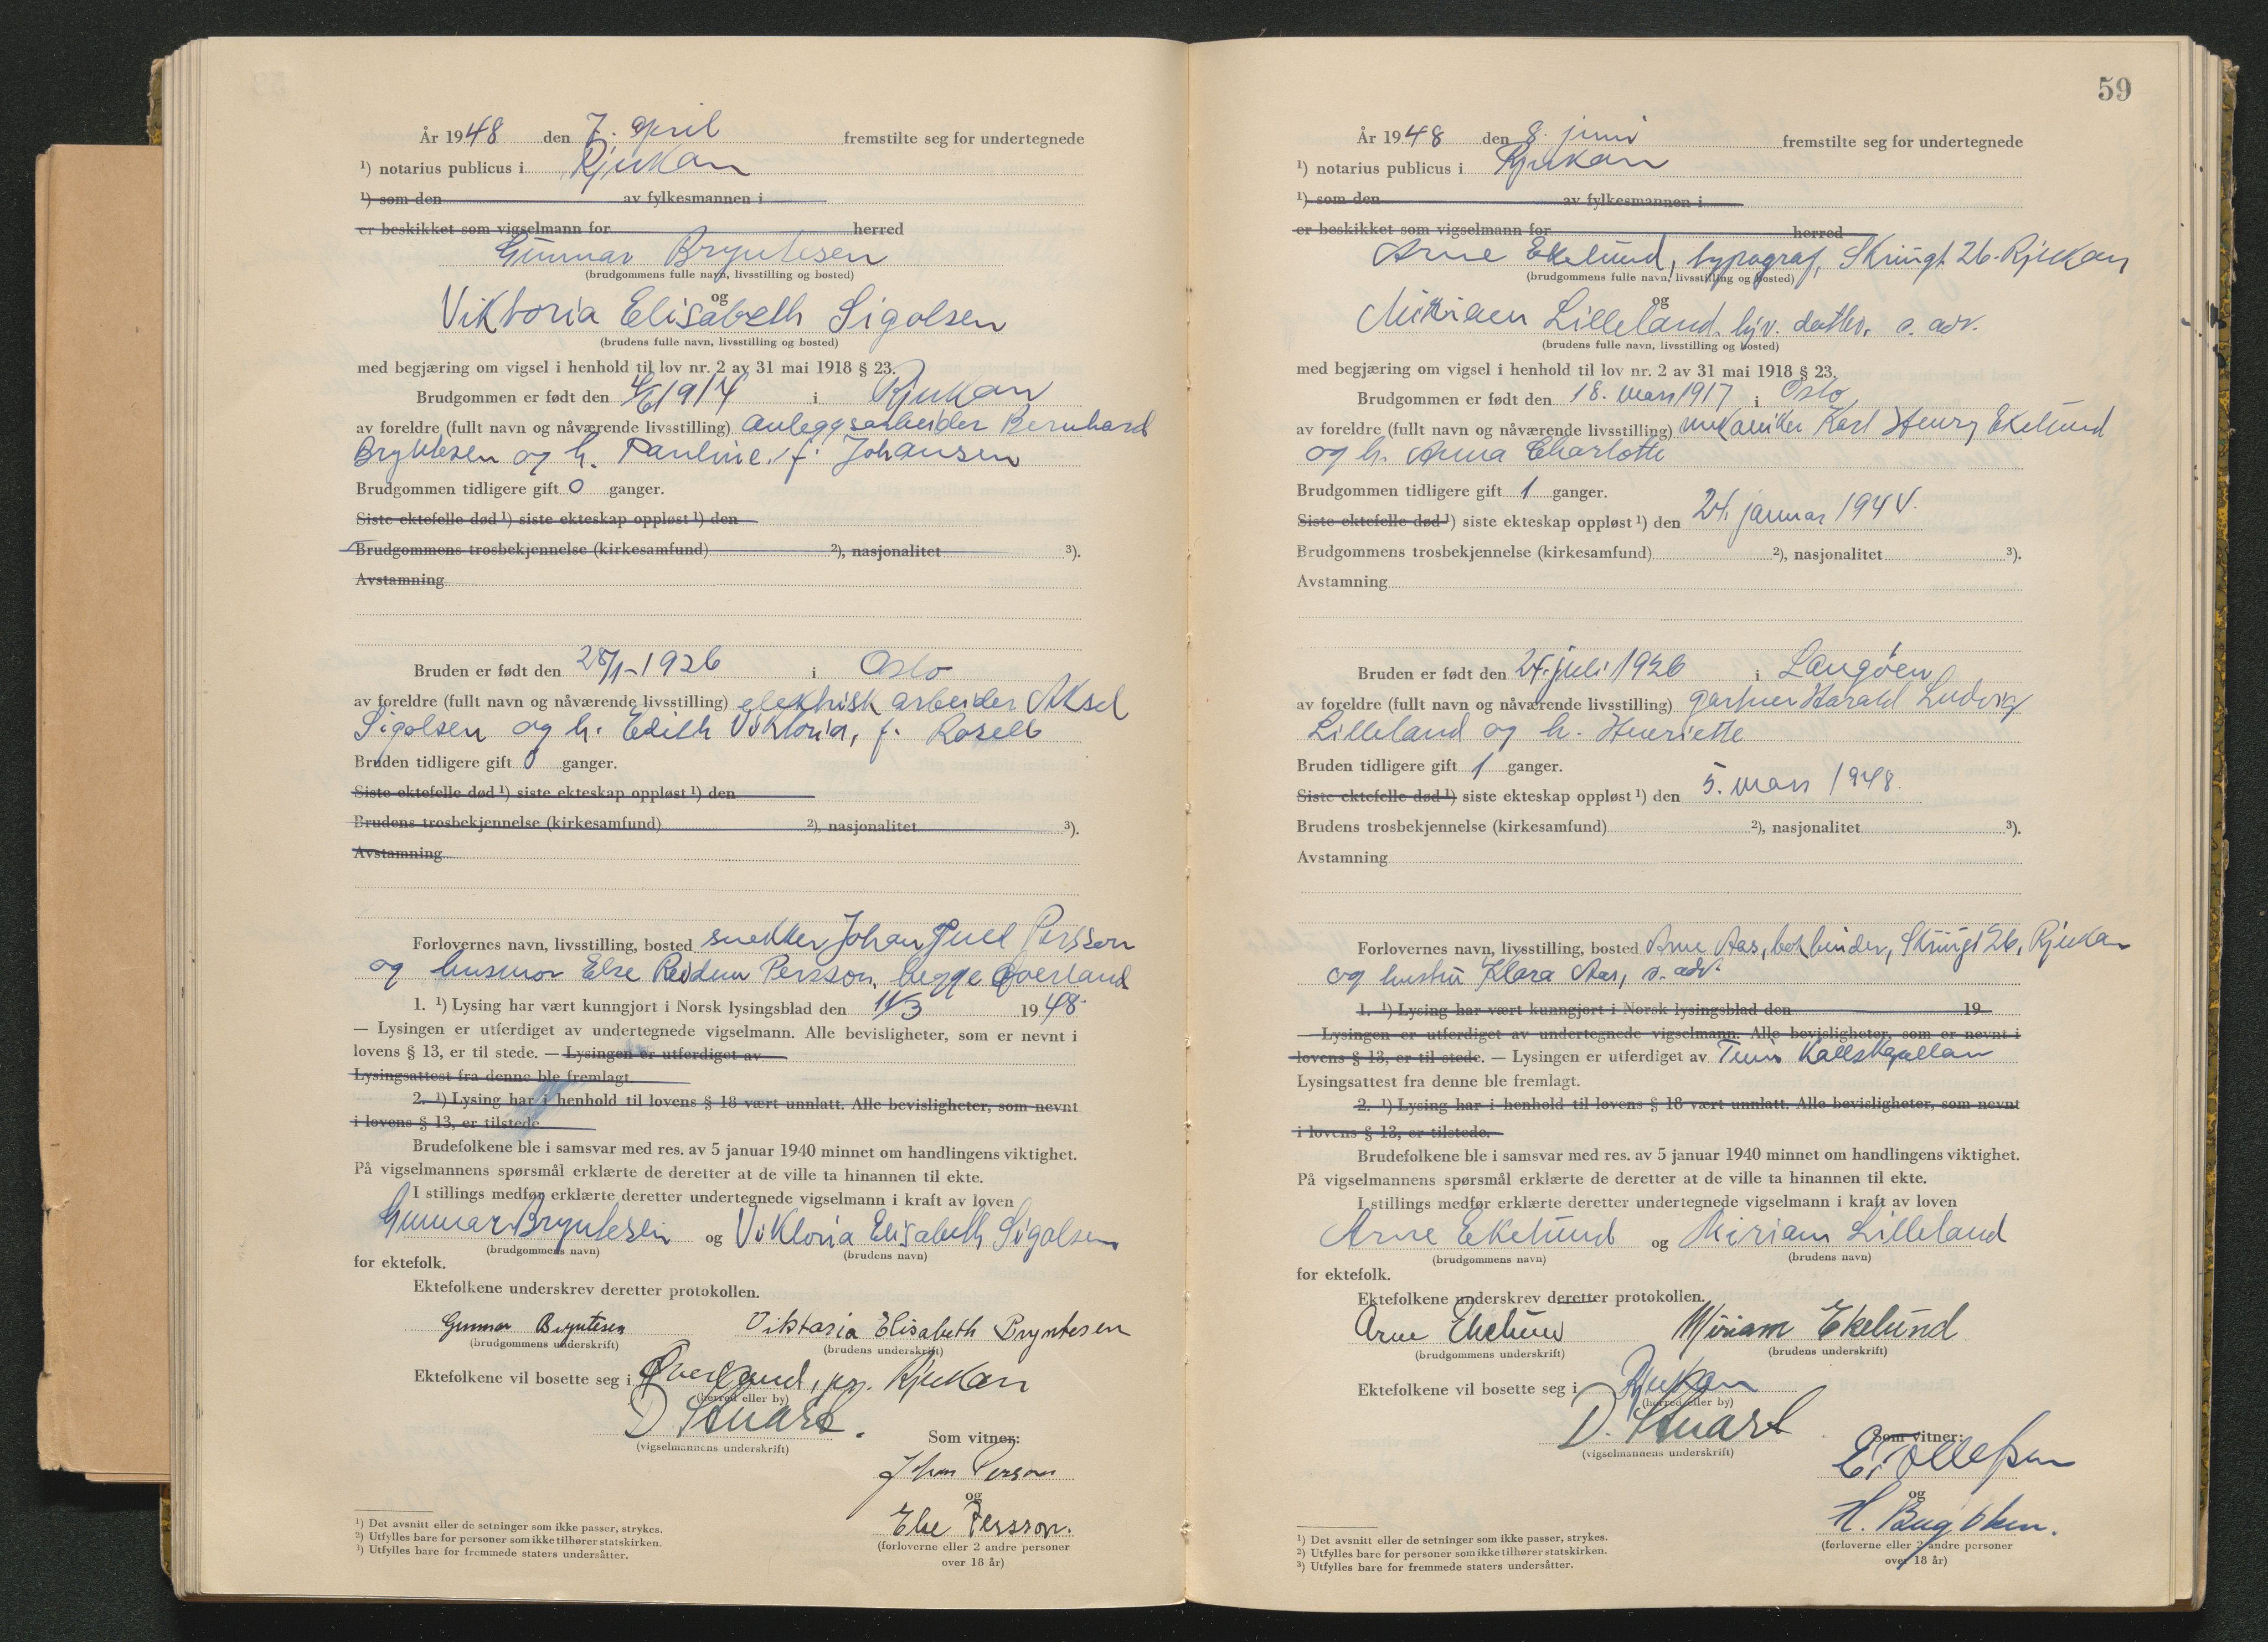 År 1948 den 7. april fremstilte seg for undertegnede
¹) notarius publicus i Rjukan
¹) som den av fylkesmannen i
er beskikket som vigselmann for herred
Gunnar Bryntesen
(brudgommens fulle navn, livsstilling og bosted)
og
Viktoria Elisabeth Sigolsen
(brudens fulle navn, livsstilling og bosted)
med begjæring om vigsel i henhold til lov nr. 2 av 31 mai 1918 § 23.
Brudgommen er født den 4/6 1914 i Rjukan
av foreldre (fullt navn og nåværende livsstilling) anleggsarbeider Bernhard
Bryntesen og h. Pauline, f. Johansen
Brudgommen tidligere gift 0 ganger.
Siste ektefelle død ¹) siste ekteskap oppløst ¹) den
Brudgommens trosbekjennelse (kirkesamfund) ²), nasjonalitet ³).
Avstamning
Bruden er født den 28/1-1926 i Oslo
av foreldre (fullt navn og nåværende livsstilling) elektrisk arbeider Aksel
Sigolsen og h. Edith Viktoria, f. Rosell
Bruden tidligere gift 0 ganger.
Siste ektefelle død ¹) siste ekteskap oppløst ¹) den
Brudens trosbekjennelse (kirkesamfund) ²), nasjonalitet ³).
Avstamning
Forlovernes navn, livsstilling, bosted snekker Johan Persson
og husmor Else Reidun Persson, begge Øverland
1. ¹) Lysing har vært kunngjort i Norsk lysingsblad den 11/3 1948
— Lysingen er utferdiget av undertegnede vigselmann. Alle bevisligheter, som er nevnt i
lovens § 13, er til stede. — Lysingen er utferdiget av
Lysingsattest fra denne ble fremlagt
2. ¹) Lysing har i henhold til lovens § 18 vært unnlatt. Alle bevisligheter, som nevnt
i lovens § 13, er tilstede
Brudefolkene ble i samsvar med res. av 5 januar 1940 minnet om handlingens viktighet.
På vigselmannens spørsmål erklærte de deretter at de ville ta hinannen til ekte.
I stillings medfør erklærte deretter undertegnede vigselmann i kraft av loven
Gunnar Bryntesen og Viktoria Elisabeth Sigolsen
(brudgommens navn) (brudens navn)
for ektefolk.
Ektefolkene underskrev deretter protokollen.
Gunnar Bryntesen Viktoria Elisabeth Bryntesen
(brudgommens underskrift) (brudens underskrift)
Ektefolkene vil bosette seg i Øverland, pr. Rjukan
(herred eller by)
D. Stuart.
(vigselmannens underskrift)
Som vitner:
Johan Persson
og
Else Persson.
(forloverne eller 2 andre personer
over 18 år)
¹) Det avsnitt eller de setninger som ikke passer, strykes.
²) Utfylles bare for personer som ikke tilhører statskirken.
³) Utfylles bare for fremmede staters undersåtter.
59
År 1948 den 8. juni fremstilte seg for undertegnede
¹) notarius publicus i Rjukan
¹) som den av fylkesmannen i
er beskikket som vigselmann for herred
Arne Ekelund, typograf, Skriugt. 26. Rjukan
(brudgommens fulle navn, livsstilling og bosted)
og
Miriam Lilleland. hjv. datter, s. adr.
(brudens fulle navn, livsstilling og bosted)
med begjæring om vigsel i henhold til lov nr. 2 av 31 mai 1918 § 23.
Brudgommen er født den 18. mars 1917 i Oslo
av foreldre (fullt navn og nåværende livsstilling) mekaniker Karl Henry Ekelund
og h. Anna Charlotte
Brudgommen tidligere gift 1 ganger.
Siste ektefelle død ¹) siste ekteskap oppløst ¹) den 24. januar 1944.
Brudgommens trosbekjennelse (kirkesamfund) ²), nasjonalitet ³).
Avstamning
Bruden er født den 24. juli 1926 i Langöen
av foreldre (fullt navn og nåværende livsstilling) gartner Harald Ludvig
Lilleland og h. Henriette
Bruden tidligere gift 1 ganger.
Siste ektefelle død ¹) siste ekteskap oppløst ¹) den 5. mars 1948.
Brudens trosbekjennelse (kirkesamfund) ²), nasjonalitet ³).
Avstamning
Forlovernes navn, livsstilling, bosted Arne Aas, bokbinder, Skriugt 26, Rjukan
og hustru Klara Aas, s. adr.
1. ¹) Lysing har vært kunngjort i Norsk lysingsblad den 19
— Lysingen er utferdiget av undertegnede vigselmann. Alle bevisligheter, som er nevnt i
lovens § 13, er til stede. — Lysingen er utferdiget av Tinns Kallskapellan
Lysingsattest fra denne ble fremlagt.
2. ¹) Lysing har i henhold til lovens § 18 vært unnlatt. Alle bevisligheter, som nevnt
i lovens § 13, er tilstede.
Brudefolkene ble i samsvar med res. av 5 januar 1940 minnet om handlingens viktighet.
På vigselmannens spørsmål erklærte de deretter at de ville ta hinannen til ekte.
I stillings medfør erklærte deretter undertegnede vigselmann i kraft av loven
Arne Ekelund og Miriam Lilleland
(brudgommens navn) (brudens navn)
for ektefolk.
Ektefolkene underskrev deretter protokollen.
Arne Ekelund Miriam Ekelund
(brudgommens underskrift) (brudens underskrift)
Ektefolkene vil bosette seg i Rjukan
(herred eller by)
D. Stuart
(vigselmannens underskrift)
Som vitner:
E. Tollefsen
og
H.
(forloverne eller 2 andre personer
over 18 år)
¹) Det avsnitt eller de setninger som ikke passer, strykes.
²) Utfylles bare for personer som ikke tilhører statskirken.
³) Utfylles bare for fremmede staters undersåtter.